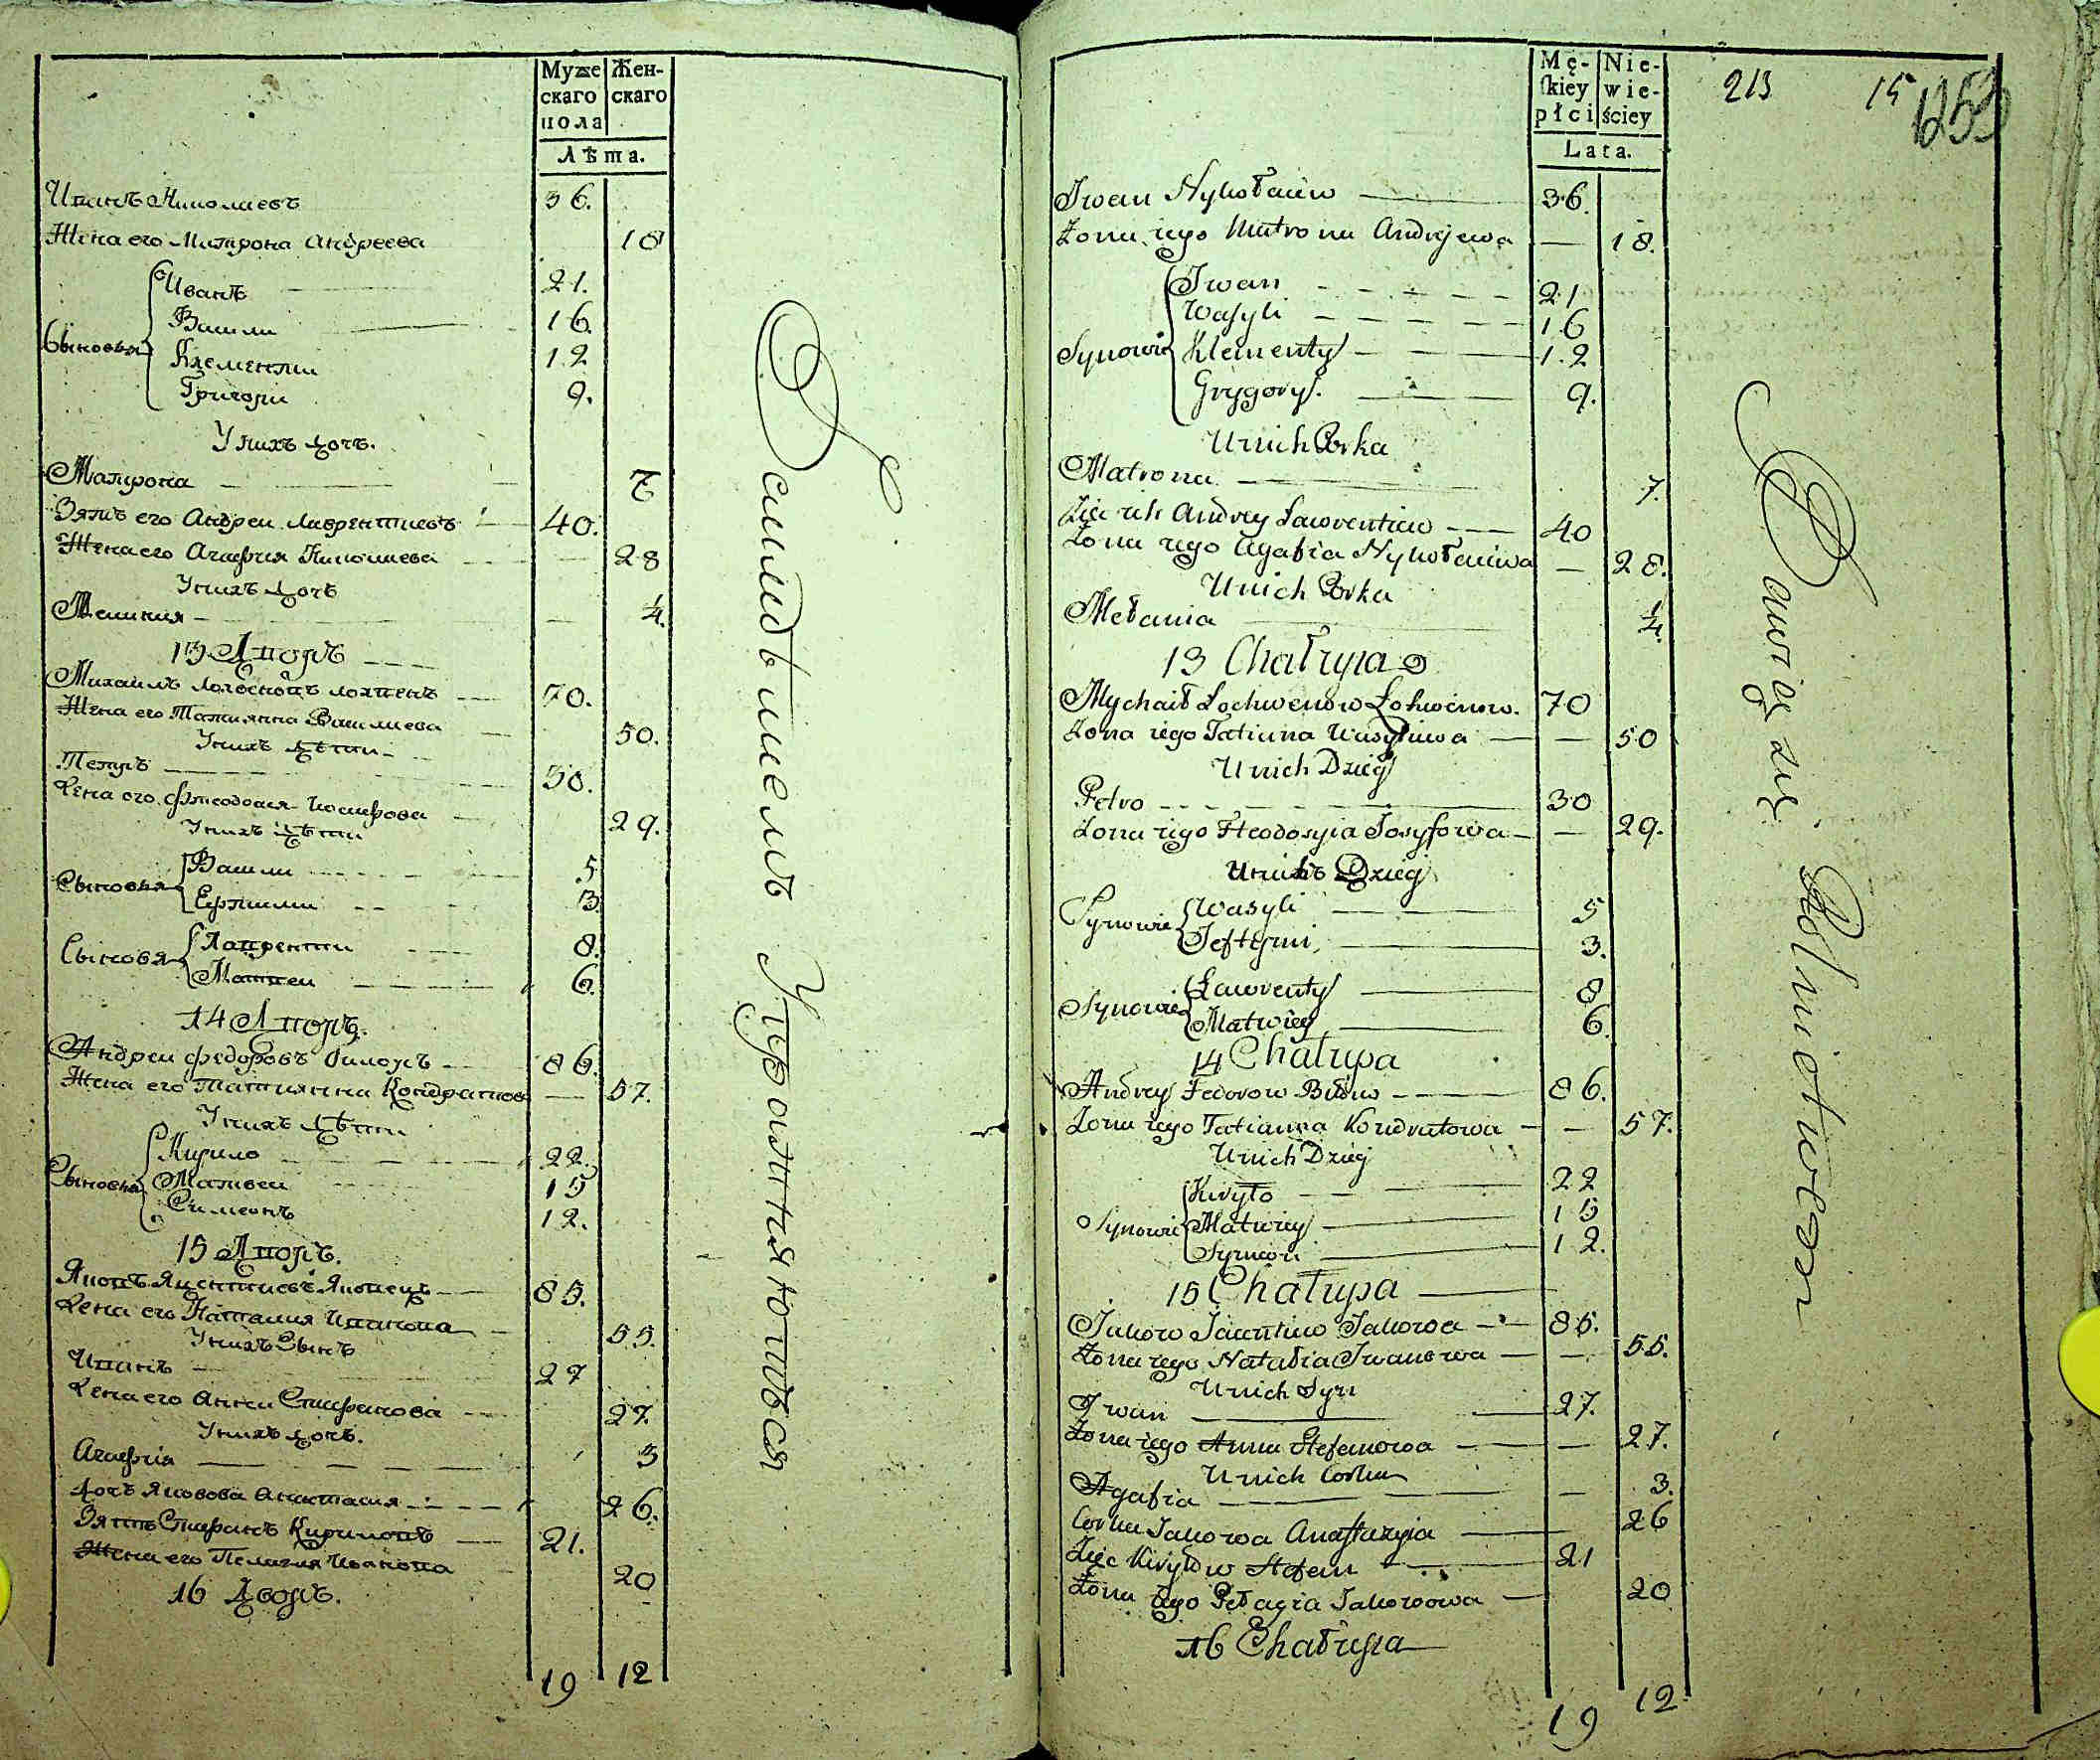 Муже Жен-
скаго скаго
пола
Лѣта.
Иванъ Николаевъ 36.
Жена его Матрона Андреева 18
Иванъ 21.
Васили 16.
Сыновья Клементи 12
Григори 9.
У нихъ дочь.
Матрона 7
Зять его Андреи Лаврентиевъ 40.
Жена его Агафия Николаева 28
У нихъ дочь
Мелания ¼.
13 Дворъ
Михаилъ 70.
Жена его Татиянна Василиева 50.
У нихъ дѣти
Петръ 30.
Жена его Феодосия Иосифова 29.
У нихъ дѣти
Васили 5
Сыновья
Ефтими 3
Сыновя Лаврентии 8.
Матвеи 6.
14 Дворъ.
Андреи Федоровъ 86.
Жена его Татиянна Кондратова 57.
У нихъ дѣти
Кирило 22.
Сыновья Матвеи 15
Симеонъ 12.
15 Дворъ.
Яковъ 85.
Жена его Наталия Иванова 55.
У нихъ Сынъ
Иванъ 27
Жена его Анна Стефанова 27.
У нихъ дочь.
Агафия 3
дочь Яковова Анастасия 26.
Зять Стефанъ Кириловъ 21.
Жена его Пелагия 20
16 Дворъ.
19 12
Земледѣлиемъ
Mę- Nie-
skiey wie-
płci ściey
Lata.
213 15 253
Iwan Nykołaiew 36.
Żona iego Matrona Andrejewa 18.
Iwan 21
Wasyli 16
Synowie Klementy 12
Grygory. 9.
U nich Corka
Matrona 7.
Zięć ich Andrey Lawrentiew 40
Żona iego Agafia Nykołaiewa 28.
U nich Corka
Mełania ¼.
13 Chałupa
Mychaił Lochwenow Łohwinow. 70
Żona iego Tatiana Wasyliewa 50
U nich Dzieci
Petro 30
Żona iego Fteodosyia Josyfowa 29.
U nich Dzieci
Synowie Wasyli 5
Jeftymi 3.
Synowie Ławrenty 8
Matwiey 6.
14 Chałupa
Andrey Fedorow 86.
Żona iego Tatianna Kondratowa 57.
U nich Dzieci
Kiryło 22
Synowie Matwiey 15
Symeon 12.
15 Chałupa
Jakow 85.
Żona iego Natalia Iwanowa 55.
U nich Syn
Iwan 27.
Żona iego Anna Stefanowa 27.
U nich Corka
Agafia 3.
Corka Jakowa Anastazyia 26
Zięć Kiryłow Stefan 21
Żona iego Pełagia Jakowowa 20
16 Chałupa
19 12
Bawią się Rolnictwem